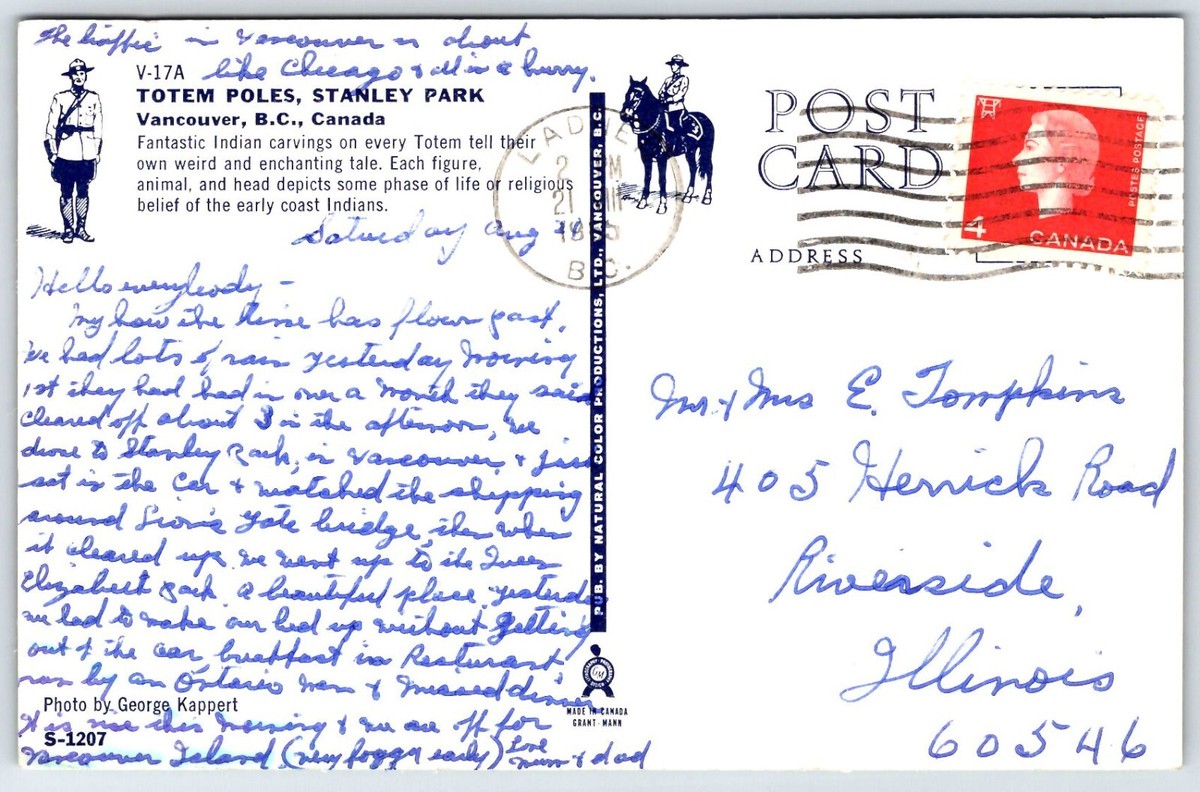 The traffic in Vancouver is about
like Chicago & all in a hurry.
V-17A
TOTEM POLES, STANLEY PARK
Vancouver, B.C., Canada
Fantastic Indian carvings on every Totem tell their
own weird and enchanting tale. Each figure,
animal, and head depicts some phase of life or religious
belief of the early coast Indians.
Saturday Aug 21
Hello everybody -
My how the time has flown past.
We had lots of rain yesterday morning
1st they had had in over a month they said
cleared off about 3 in the afternoon, we
drove to Stanley Park, in Vancouver & just
sat in the car & watched the shipping
around Lions Gate bridge, then when
it cleared up we went up to the Queen
Elizabeth Park. A beautiful place. Yesterday
we had to make our bed up without getting
out of the car breakfast in Resturant
ran by an Ontario man & missed dinner
It is nice this morning & we are off for
Vancouver Island (very foggy early) Love
Mum & dad
Photo by George Kappert
S-1207
PUB. BY NATURAL COLOR PRODUCTIONS, LTD., VANCOUVER, B.C.
MADE IN CANADA
GRANT-MANN
LADNER
2 PM
21 VIII
1965
B.C.
POST
CARD
ADDRESS
4
CANADA
POSTES POSTAGE
Mr & Mrs E. Tompkins
405 Herrick Road
Riverside,
Illinois
60546